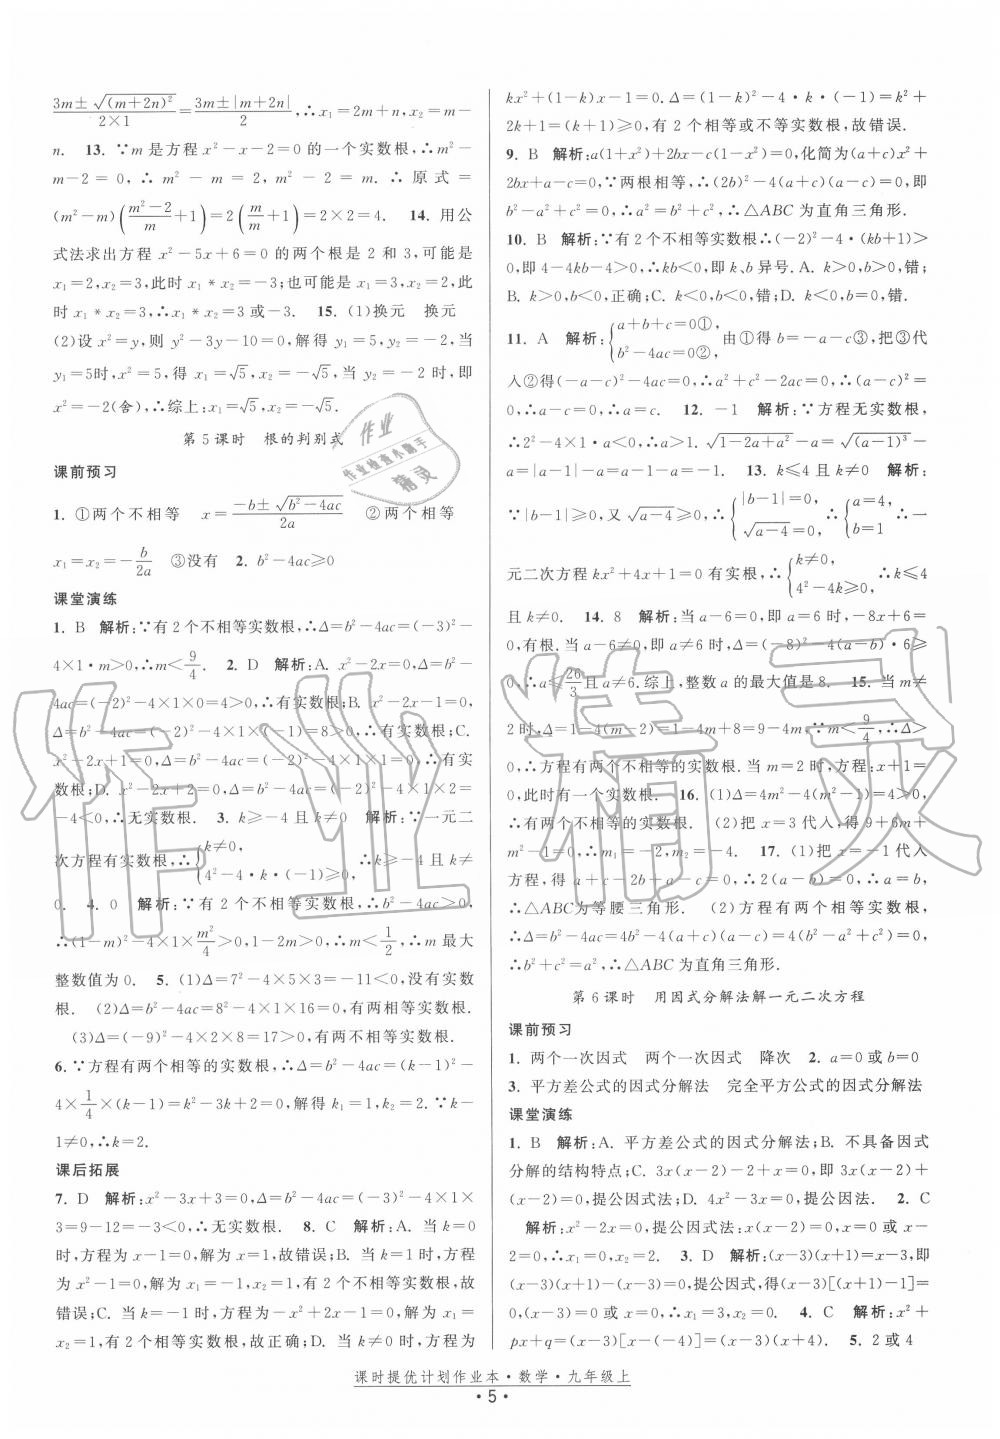 (3m±√(m+2n)²)/(2×1)=(3m±|m+2n|)/2,∴x₁=2m+n,x₂=m-
n. 13. ∵m是方程x²-x-2=0的一个实数根,∴m²-
m-2=0,∴m²-m=2,m²-2=m.∴原式=
(m²-m)((m²-2)/m+1)=2(m/m+1)=2×2=4. 14. 用公
式法求出方程x²-5x+6=0的两个根是2和3,可能是
x₁=2,x₂=3,此时x₁*x₂=-3;也可能是x₁=3,x₂=2,此
时x₁*x₂=3,∴x₁*x₂=3或-3. 15. (1)换元 换元
(2)设x²=y,则y²-3y-10=0,解得y₁=5,y₂=-2,当
y₁=5时,x²=5,得x₁=√5,x₂=-√5,当y₂=-2时,即
x²=-2(舍),∴综上:x₁=√5,x₂=-√5.
第5课时 根的判别式
课前预习
1. ①两个不相等 x=(-b±√(b²-4ac))/2a ②两个相等
x₁=x₂=-b/2a ③没有 2. b²-4ac≥0
课堂演练
1. B 解析:∵有2个不相等实数根,∴Δ=b²-4ac=(-3)²-
4×1·m>0,∴m<9/4. 2. D 解析:A. x²-2x=0,Δ=b²-
4ac=(-2)²-4×1×0=4>0,∴有实数根;B. x²-2x-1=0,
Δ=b²-4ac=(-2)²-4×1×(-1)=8>0,∴有实数根;C.
x²-2x+1=0,Δ=b²-4ac=(-2)²-4×1×1=0,∴有实
数根;D. x²-2x+2=0,Δ=b²-4ac=(-2)²-4×1×2=
-4<0,∴无实数根. 3. k≥-4且k≠0 解析:∵一元二
次方程有实数根,∴{k≠0, 4²-4·k·(-1)≥0, ∴k≥-4且k≠
0. 4. 0 解析:∵有2个不相等实数根,∴Δ=b²-4ac>0,
∴(1-m)²-4×1×m²/4>0,1-2m>0,∴m<1/2,∴m最大
整数值为0. 5. (1)Δ=7²-4×5×3=-11<0,没有实数
根. (2)Δ=b²-4ac=8²-4×1×16=0,有两相等实数根.
(3)Δ=(-9)²-4×2×8=17>0,有两不相等实数根.
6. ∵方程有两个相等的实数根,∴Δ=b²-4ac=(-k)²-
4×1/4×(k-1)=k²-3k+2=0,解得k₁=1,k₂=2.∵k-
1≠0,∴k=2.
课后拓展
7. D 解析:x²-3x+3=0,Δ=b²-4ac=(-3)²-4×1×
3=9-12=-3<0,∴无实数根. 8. C 解析:A. 当k=0
时,方程为x-1=0,解为x=1,故错误;B. 当k=1时,方程
为x²-1=0,解为x₁=-1,x₂=1,有2个不相等实数根,故
错误;C. 当k=-1时,方程为-x²+2x-1=0,解为x₁=
x₂=1,有2个相等实数根,故正确;D. 当k≠0时,方程为
kx²+(1-k)x-1=0.Δ=(1-k)²-4·k·(-1)=k²+
2k+1=(k+1)²≥0,有2个相等或不等实数根.故错误.
9. B 解析:a(1+x²)+2bx-c(1-x²)=0,化简为(a+c)x²+
2bx+a-c=0,∵两根相等,∴(2b)²-4(a+c)(a-c)=0,即
b²-a²+c²=0,∴a²=b²+c²,∴△ABC为直角三角形.
10. B 解析:∵有2个不相等实数根∴(-2)²-4·(kb+1)>
0,即4-4kb-4>0,∴kb<0,即k、b异号.A. k>0,b>0,错;
B. k>0,b<0,正确;C. k<0,b<0,错;D. k<0,b=0,错.
11. A 解析:{a+b+c=0①, b²-4ac=0②, 由①得b=-a-c③,把③代
入②得(-a-c)²-4ac=0,∴a²+c²-2ac=0,∴(a-c)²=
0,∴a-c=0,即a=c. 12. -1 解析:∵方程无实数根,
∴2²-4×1·a<0,∴a>1.√(1-2a+a²)-√(a-1)³-
a=|a-1|-|-a|=a-1-a=-1. 13. k≤4且k≠0 解析:
∵|b-1|≥0,又√(a-4)≥0,∴{|b-1|=0, √(a-4)=0, ∴{a=4, b=1 ∴一
元二次方程kx²+4x+1=0有实根,∴{k≠0, 4²-4k≥0, ∴k≤4
且k≠0. 14. 8 解析:当a-6=0,即a=6时,-8x+6=
0,有根.当a-6≠0,即a≠6时,Δ=(-8)²-4(a-6)·6≥
0,∴a≤26/3且a≠6.综上,整数a的最大值是8. 15. 当m≠
2时,Δ=1-4(m-2)=1-4m+8=9-4m,∵m<9/4,∴Δ>
0,∴方程有两个不相等的实数根.当m=2时,方程:x+1=
0,此时有一个实数根. 16. (1)Δ=4m²-4(m²-1)=4>0,
∴有两个不相等的实数根. (2)把x=3代入,得9+6m+
m²-1=0,∴m₁=-2,m₂=-4. 17. (1)把x=-1代入
方程,得a+c-2b+a-c=0,∴2(a-b)=0,∴a=b,
∴△ABC为等腰三角形. (2)方程有两个相等实数根,
∴Δ=b²-4ac=4b²-4(a+c)(a-c)=4(b²-a²+c²)=0,
∴b²+c²=a²,∴△ABC为直角三角形.
第6课时 用因式分解法解一元二次方程
课前预习
1. 两个一次因式 两个一次因式 降次 2. a=0或b=0
3. 平方差公式的因式分解法 完全平方公式的因式分解法
课堂演练
1. B 解析:A. 平方差公式的因式分解法;B. 不具备因式
分解的结构特点;C. 3x(x-2)-2+x=0,即3x(x-2)+
(x-2)=0,提公因式法;D. 4x²-3x=0,提公因法. 2. C
解析:x²-2x=0,提公因式法:x(x-2)=0,x=0或x-
2=0,∴x₁=0,x₂=2. 3. D 解析:(x-3)(x+1)=x-3,即
(x-3)(x+1)-(x-3)=0,提公因式,得(x-3)[(x+1)-1]=
0,(x-3)=0或x=0,∴x₁=3,x₂=0. 4. C 解析:x²+
px+q=(x-3)[x-(-4)]=(x-3)(x+4). 5. 2或4
课时提优计划作业本·数学·九年级上
·5·
作业
作业检查小助手
精灵
作业精灵